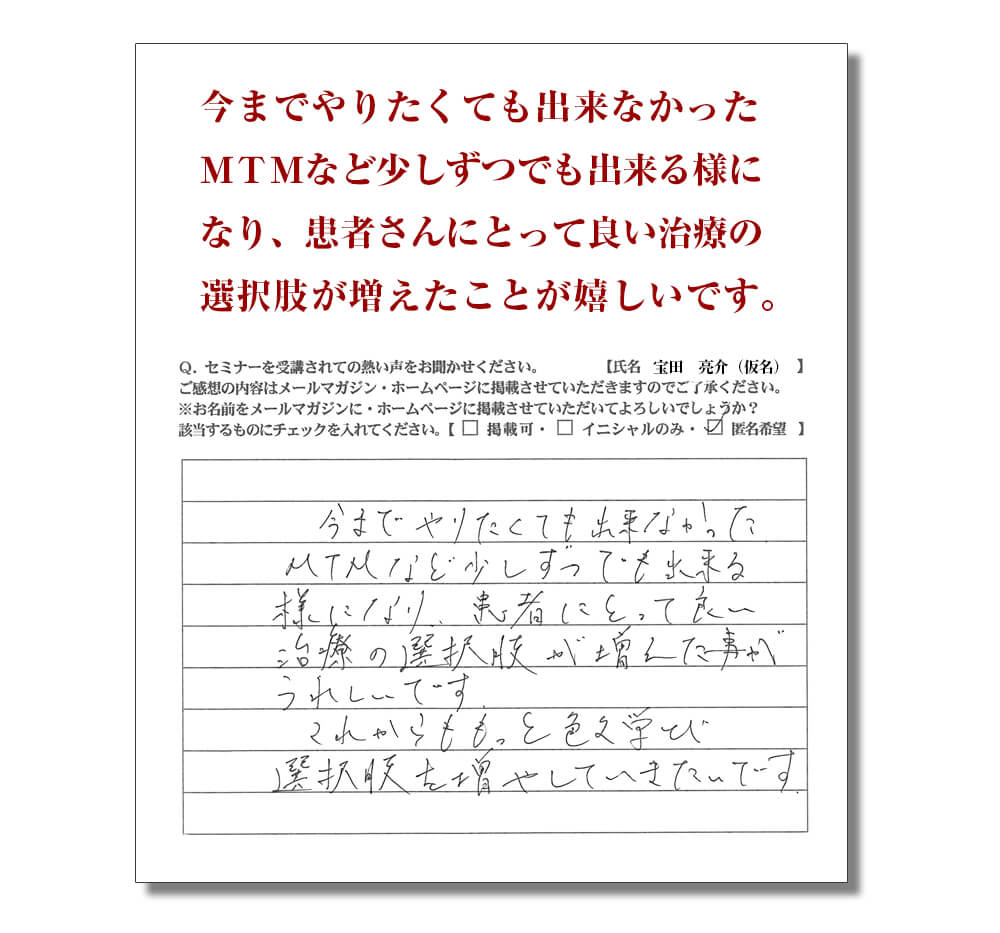 今までやりたくても出来なかった
MTMなど少しずつでも出来る様に
なり、患者さんにとって良い治療の
選択肢が増えたことが嬉しいです。
Q. セミナーを受講されての熱い声をお聞かせください。 【氏名 宝田 亮介（仮名） 】
ご感想の内容はメールマガジン・ホームページに掲載させていただきますのでご了承ください。
※お名前をメールマガジンに・ホームページに掲載させていただいてよろしいでしょうか？
該当するものにチェックを入れてください。【 □ 掲載可・ □ イニシャルのみ・ ☑ 匿名希望 】
今までやりたくても出来なかった
MTMなど少しずつでも出来る
様になり、患者にとって良い
治療の選択肢が増えた事が
うれしいです。
これからももっと色々学び
選択肢を増やしていきたいです。